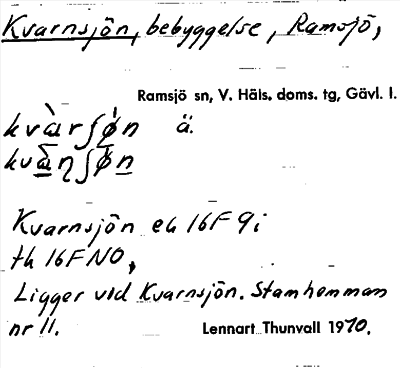 Kvarnsjön, bebyggelse, Ramsjö,
Ramsjö sn, V. Häls. doms. tg, Gävl. l.
kvàrʃǿn ä.
Kvarnsjön ek 16F 9i
tk 16F NO,
Ligger vid Kvarnsjön. Stamhemman
nr 11. Lennart Thunvall 1970.